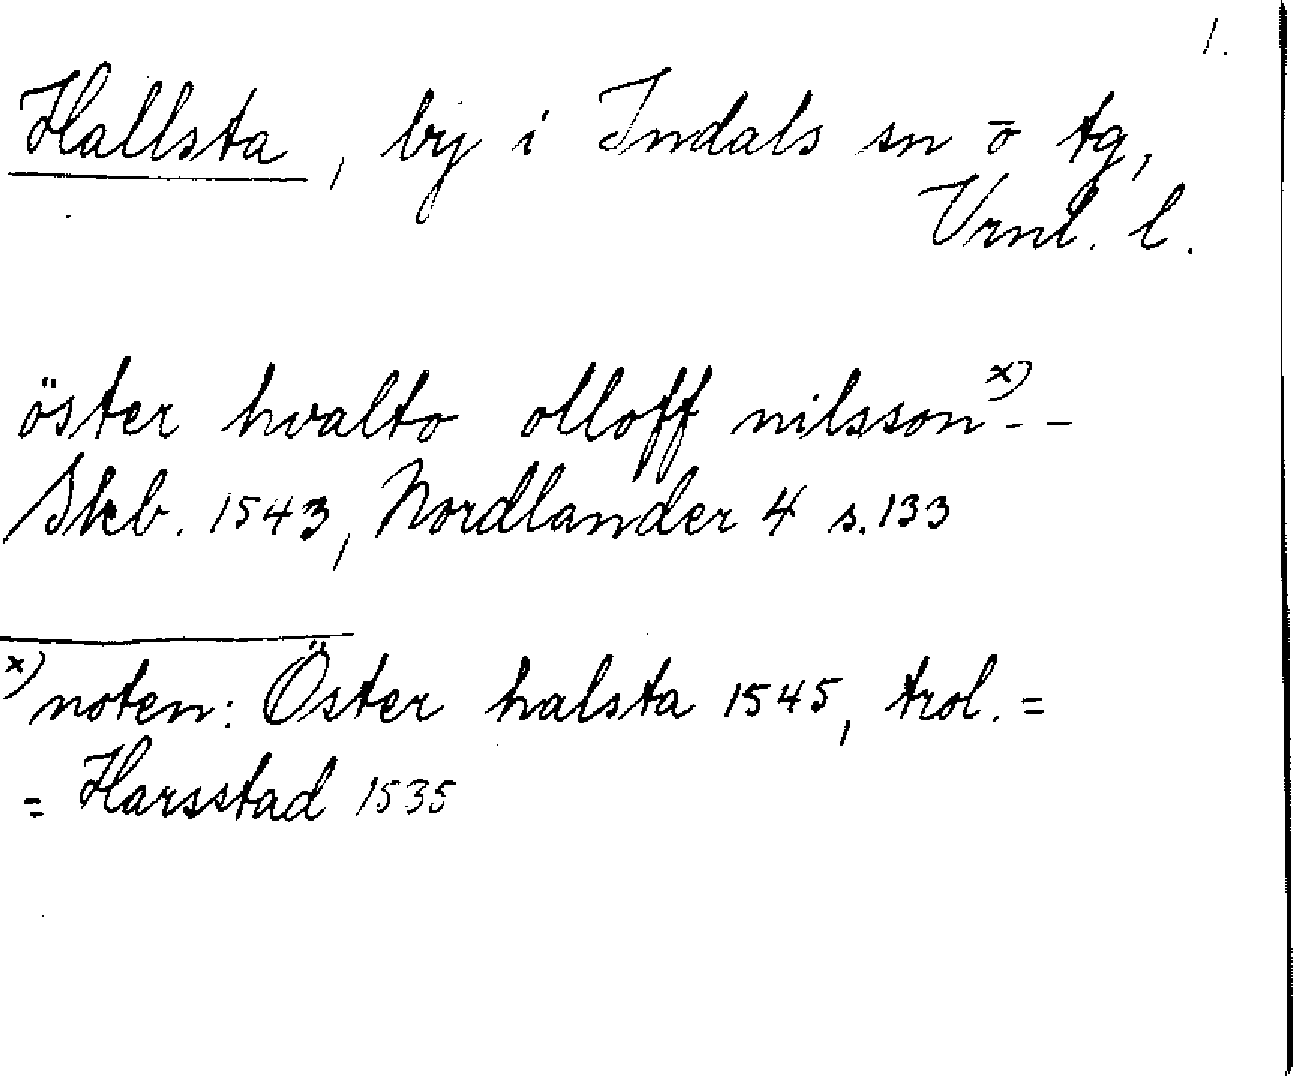 1.
Hallsta, by i Indals sn o tg,
Vrnl. l.
öster hvalto olloff nilsson x) - -
Skb. 1543, Nordlander 4 s. 133
x) noten: Öster halsta 1545, trol. =
= Harsstad 1535